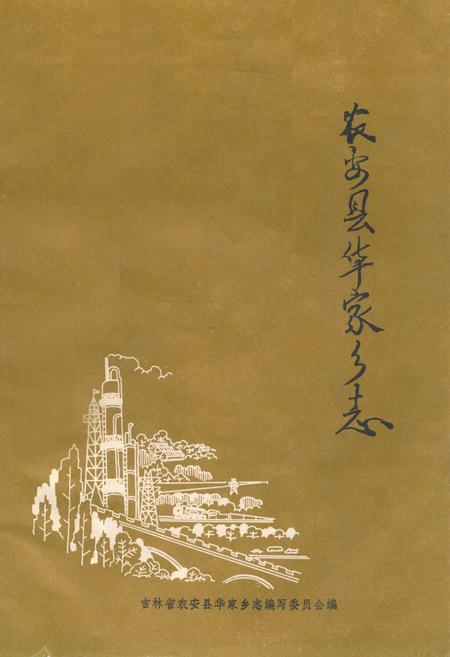 农安县华家乡志
吉林省农安县华家乡志编写委员会编